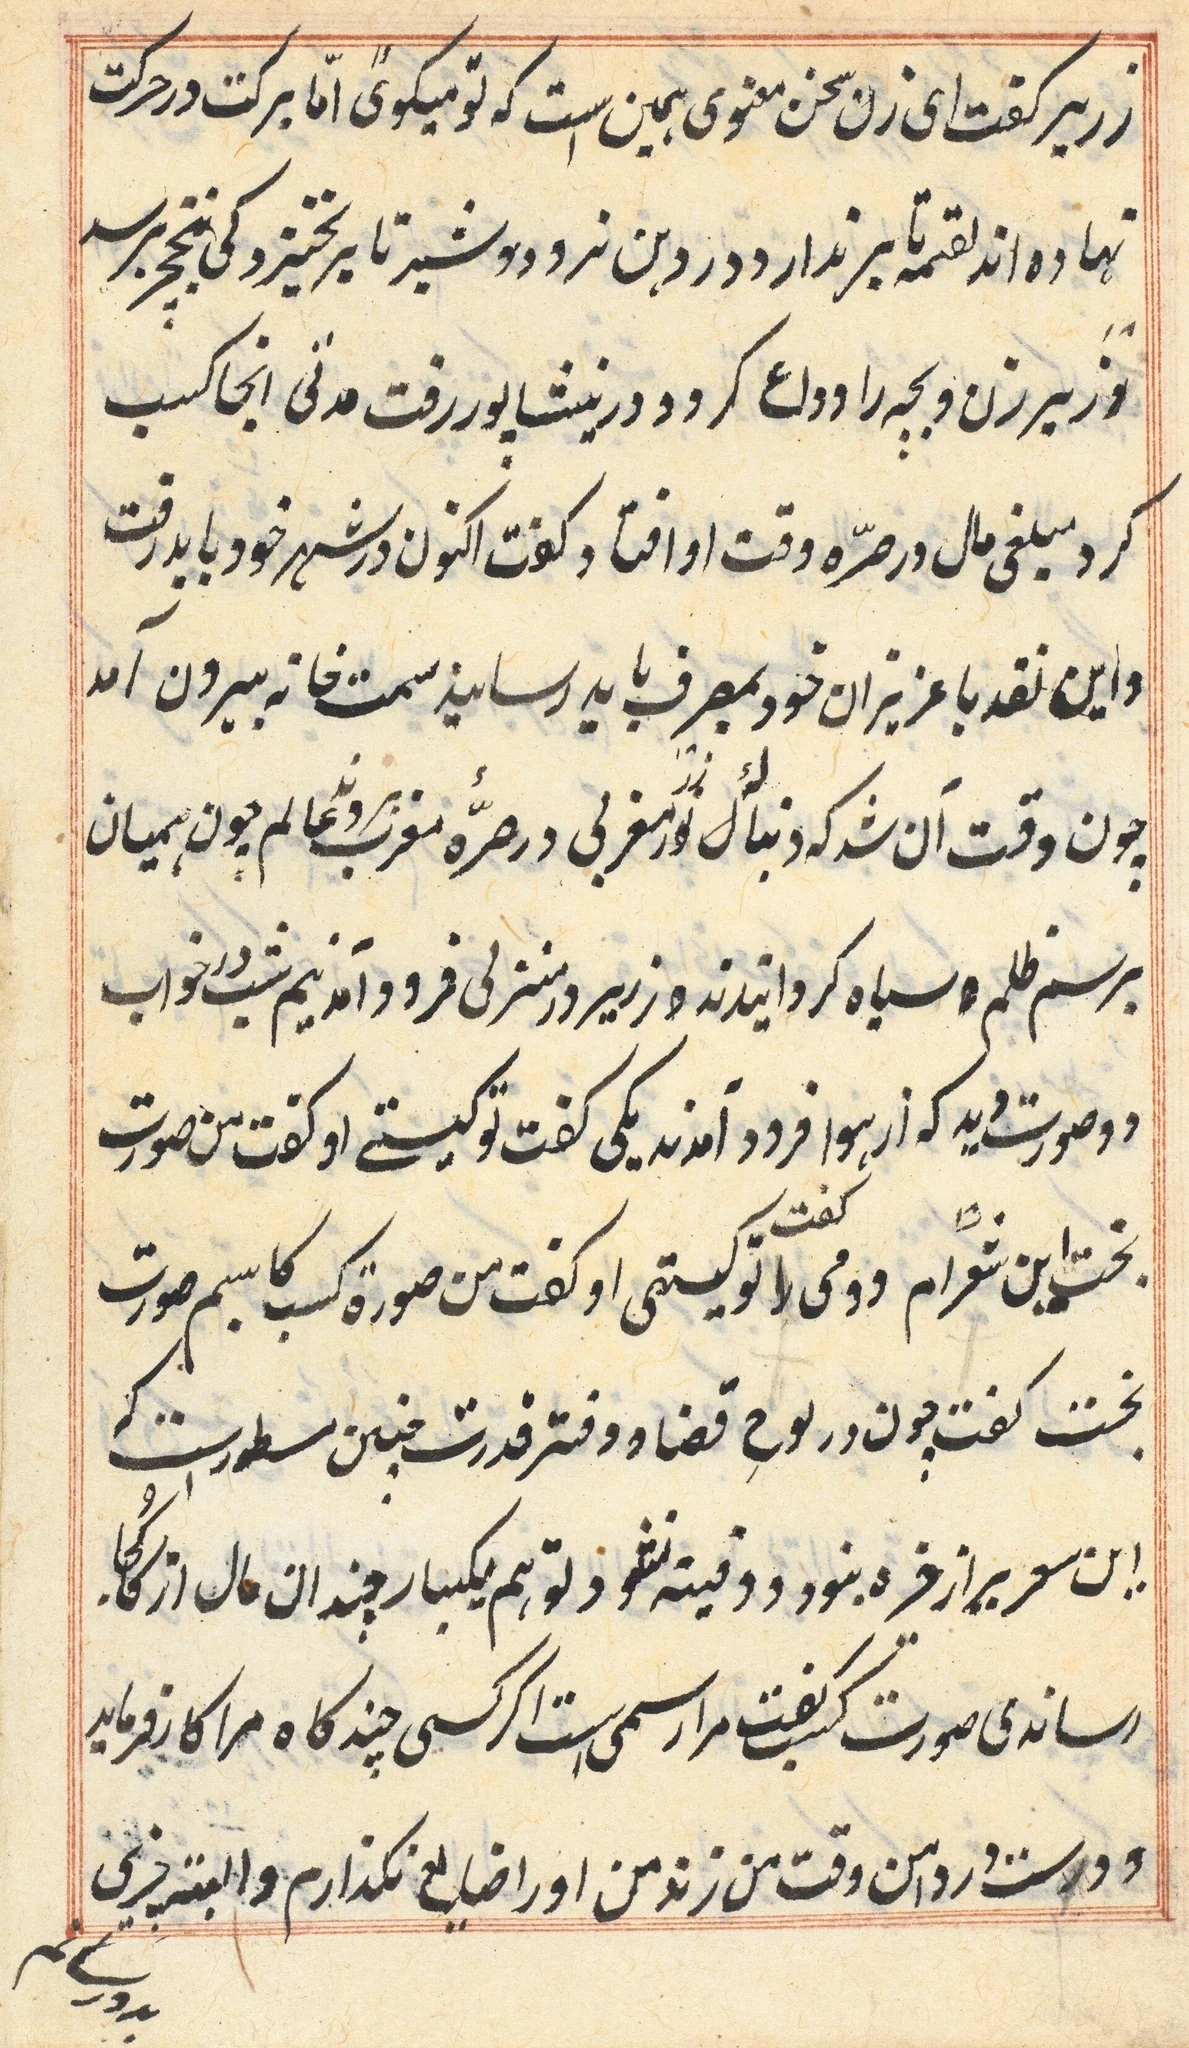 زریر کفت ای زن سخن معنوی همین است که تو میکوئی امّا برکت در حرکت
نهاده اند لقمه تا بر ندارد در دهن نرود و شیر تا بر نخیزد کی بنخچیر رسد
زریر زن و بچه را وداع کرد و در نیشاپور رفت مدتی انجا کسب
کرد مبلغی مال در صرّه وقت او افتاد کفت اکنون در شهر خود باید رفت
و این نقد با عزیزان خود بمصرف باید رسانید سمت خانه بیرون آمد
چون وقت آن شد که دنبال زر مغربی در صرّهٔ مغرب روند عالم چون همیان
بر سم ظلمه سیاه کردانیدند زریر در منزلی فرود آمد نیم شب در خواب
دو صورت دید که از هوا فرود آمدند یکی کفت تو کیستے او کفت من صورت
بخت این شعرام دومی را کفت تو کیستی او کفت من صورة کسب کاسبم صورت
بخت کفت چون در لوح قضا و دفتر قدرت چنین مسطور است که
این سعر بر از خره بنود و وقیته نشود تو هم یکبار چندان مال از کجا
رساندی صورت کسب کفت مرا رسمی است اکر کسی چند کاه مرا کار فرماید
و دست در دامن وقت من زند من او را ضایع نکذارم و البته چیزی
بدو رسانم